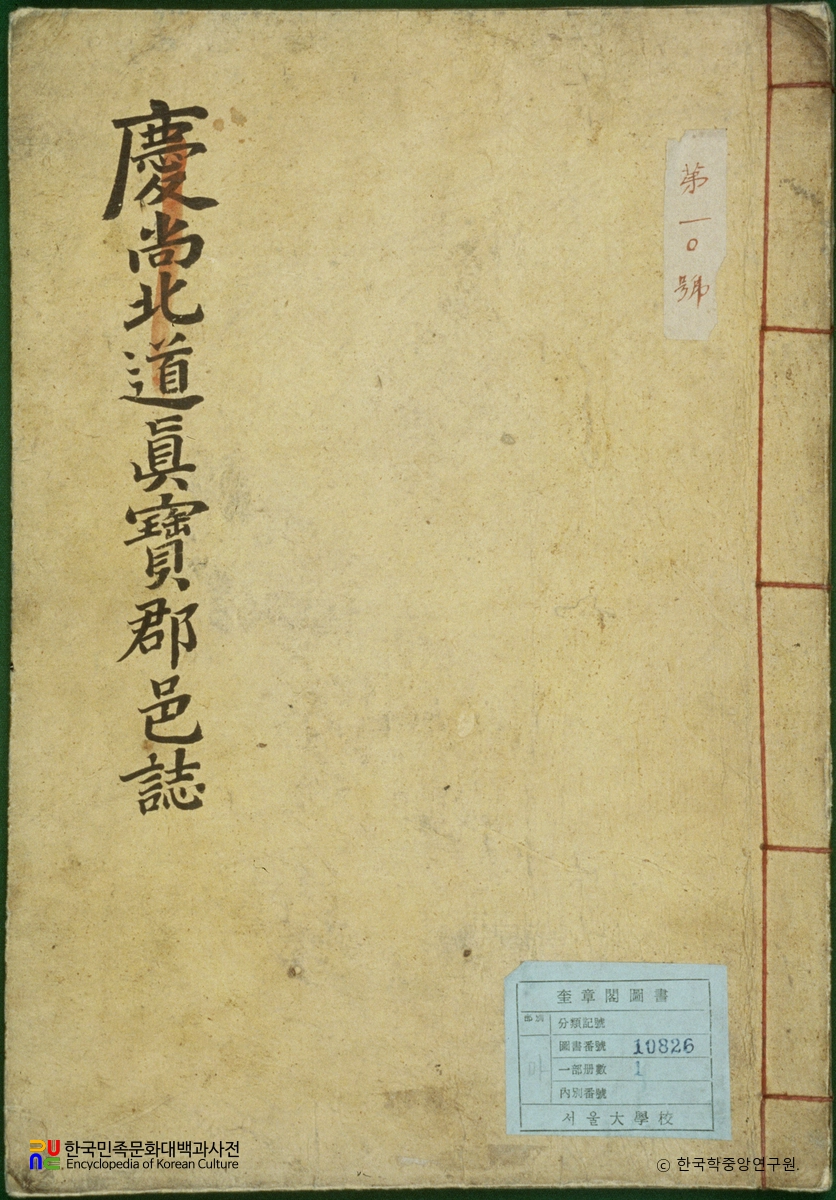 慶尚北道眞寶郡邑誌
第一〇號
奎章閣圖書
部別
分類記號
圖書番號 10826
一部册數 1
內別番號
서울大學校
한국민족문화대백과사전
Encyclopedia of Korean Culture
© 한국학중앙연구원.